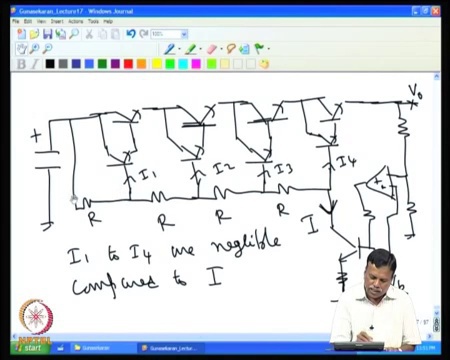 Gunasekaran_Lecture17 - Windows Journal
File Edit View Insert Actions Tools Help
100%
B I
V0
+
I1 I2 I3 I4
R R R R
I
I1 to I4 are neglible
compared to I
NPTEL
start Gunasekaran Gunasekaran_Lectur...